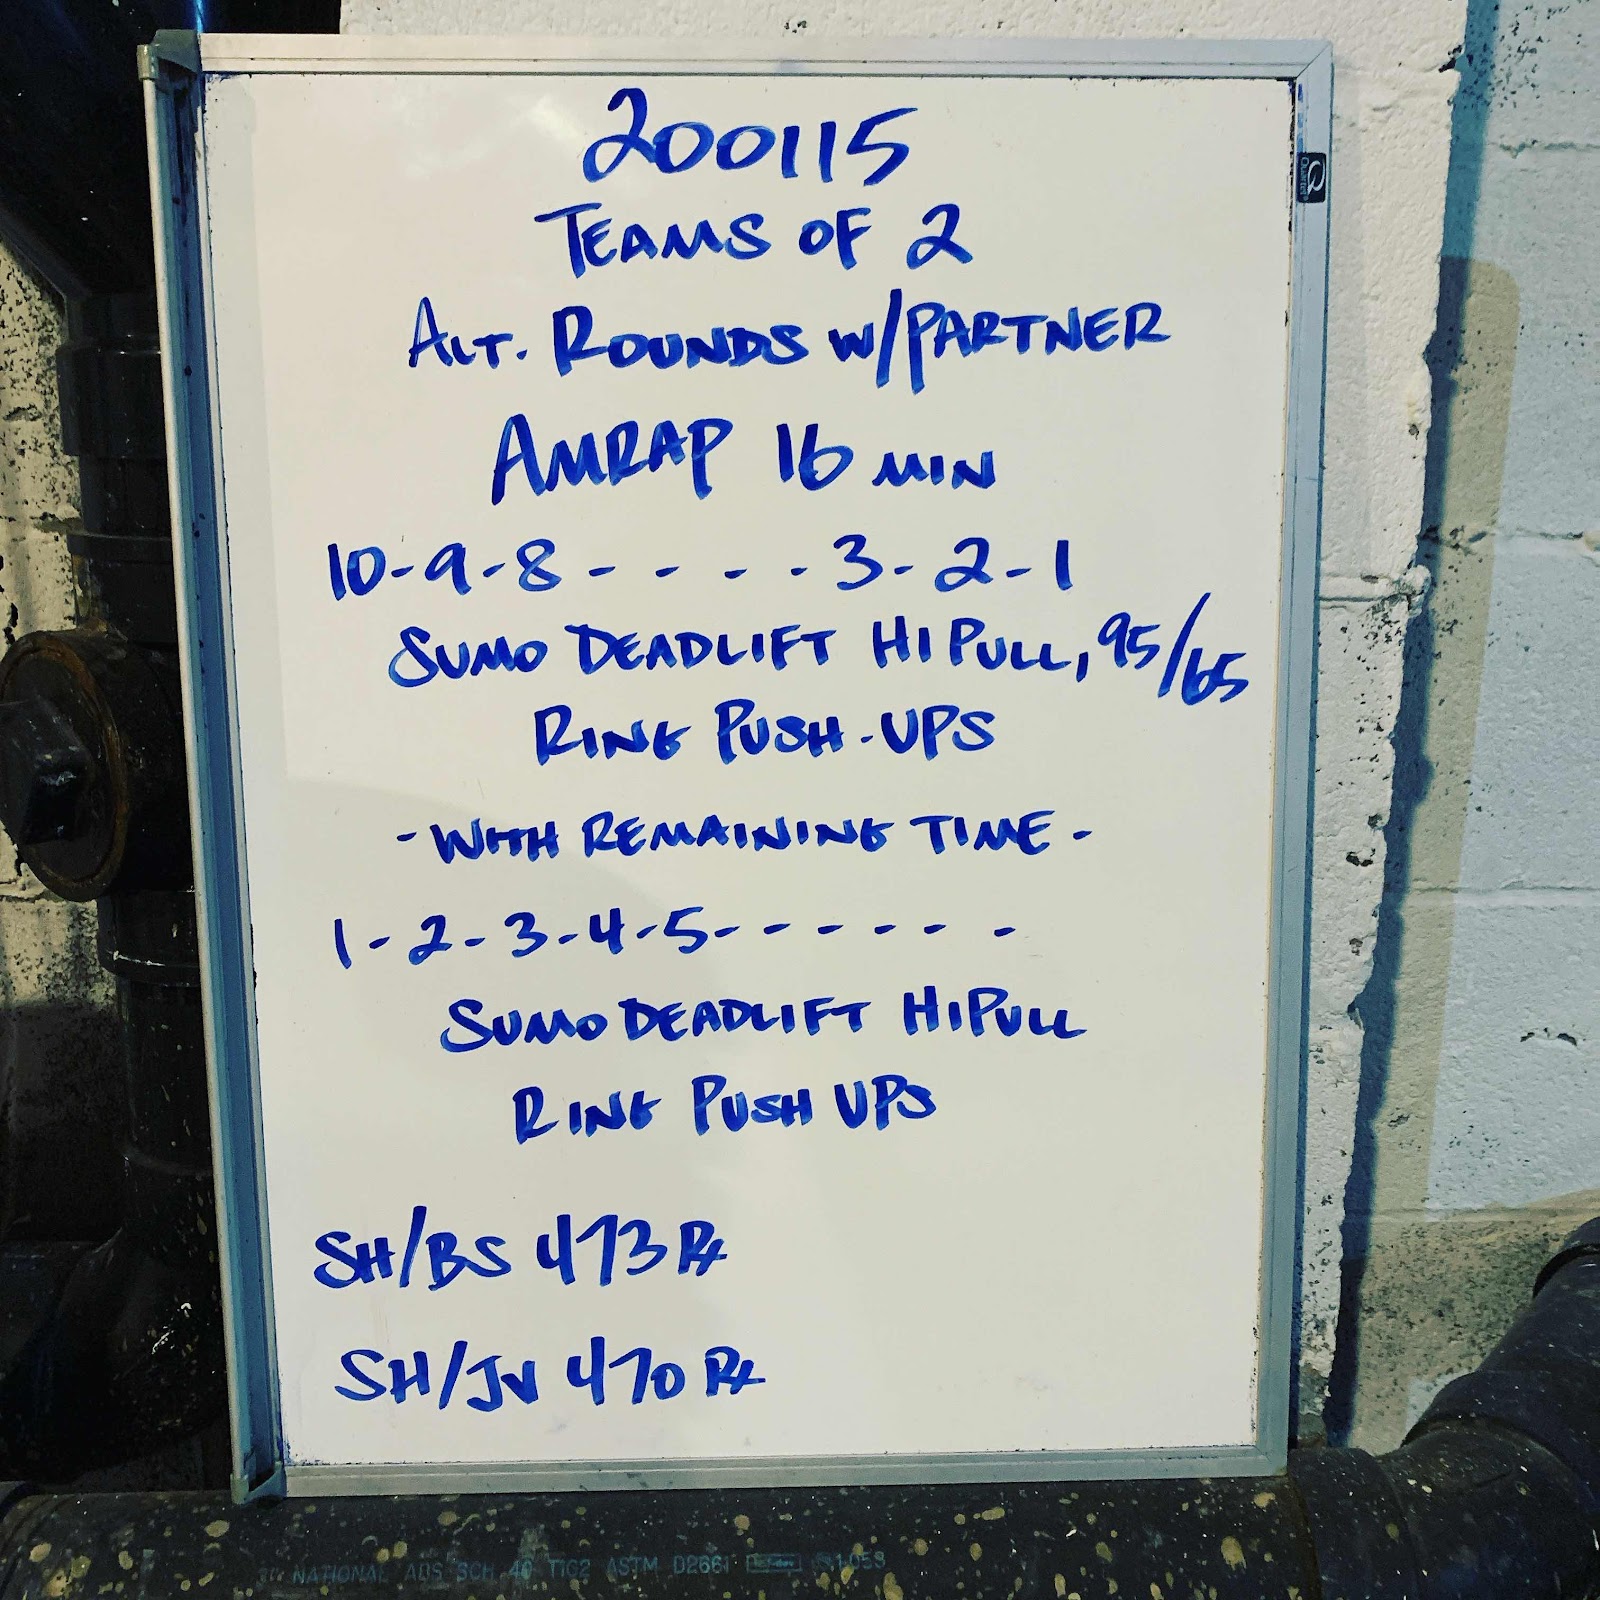 200115
TEAMS OF 2
ALT. ROUNDS W/PARTNER
AMRAP 16 MIN
10-9-8 - - - - 3-2-1
SUMO DEADLIFT HI PULL, 95/65
RING PUSH-UPS
- WITH REMAINING TIME -
1-2-3-4-5- - - - - - -
SUMO DEADLIFT HI PULL
RING PUSH UPS
SH/BS 473 Rx
SH/JV 470 Rx
Quartet
NATIONAL ABS SCH 40 ASTM D2661